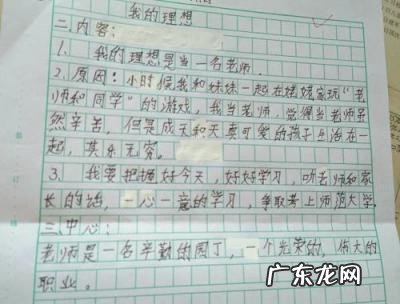 我的理想
二.内容:
1. 我的理想是当一名老师.
2. 原因:小时候我和妹妹一起在姥姥家玩“老
师和同学”的游戏,我当老师,觉得当老师虽
然辛苦,但是成天和天真可爱的孩子生活在一
起,其乐无穷。
3. 我要把握好今天,好好学习,听老师和家
长的话,一心一意的学习,争取考上师范大学.
三.中心:
老师是一名辛勤的园丁,一个光荣的,伟大的
职业。
广东龙网